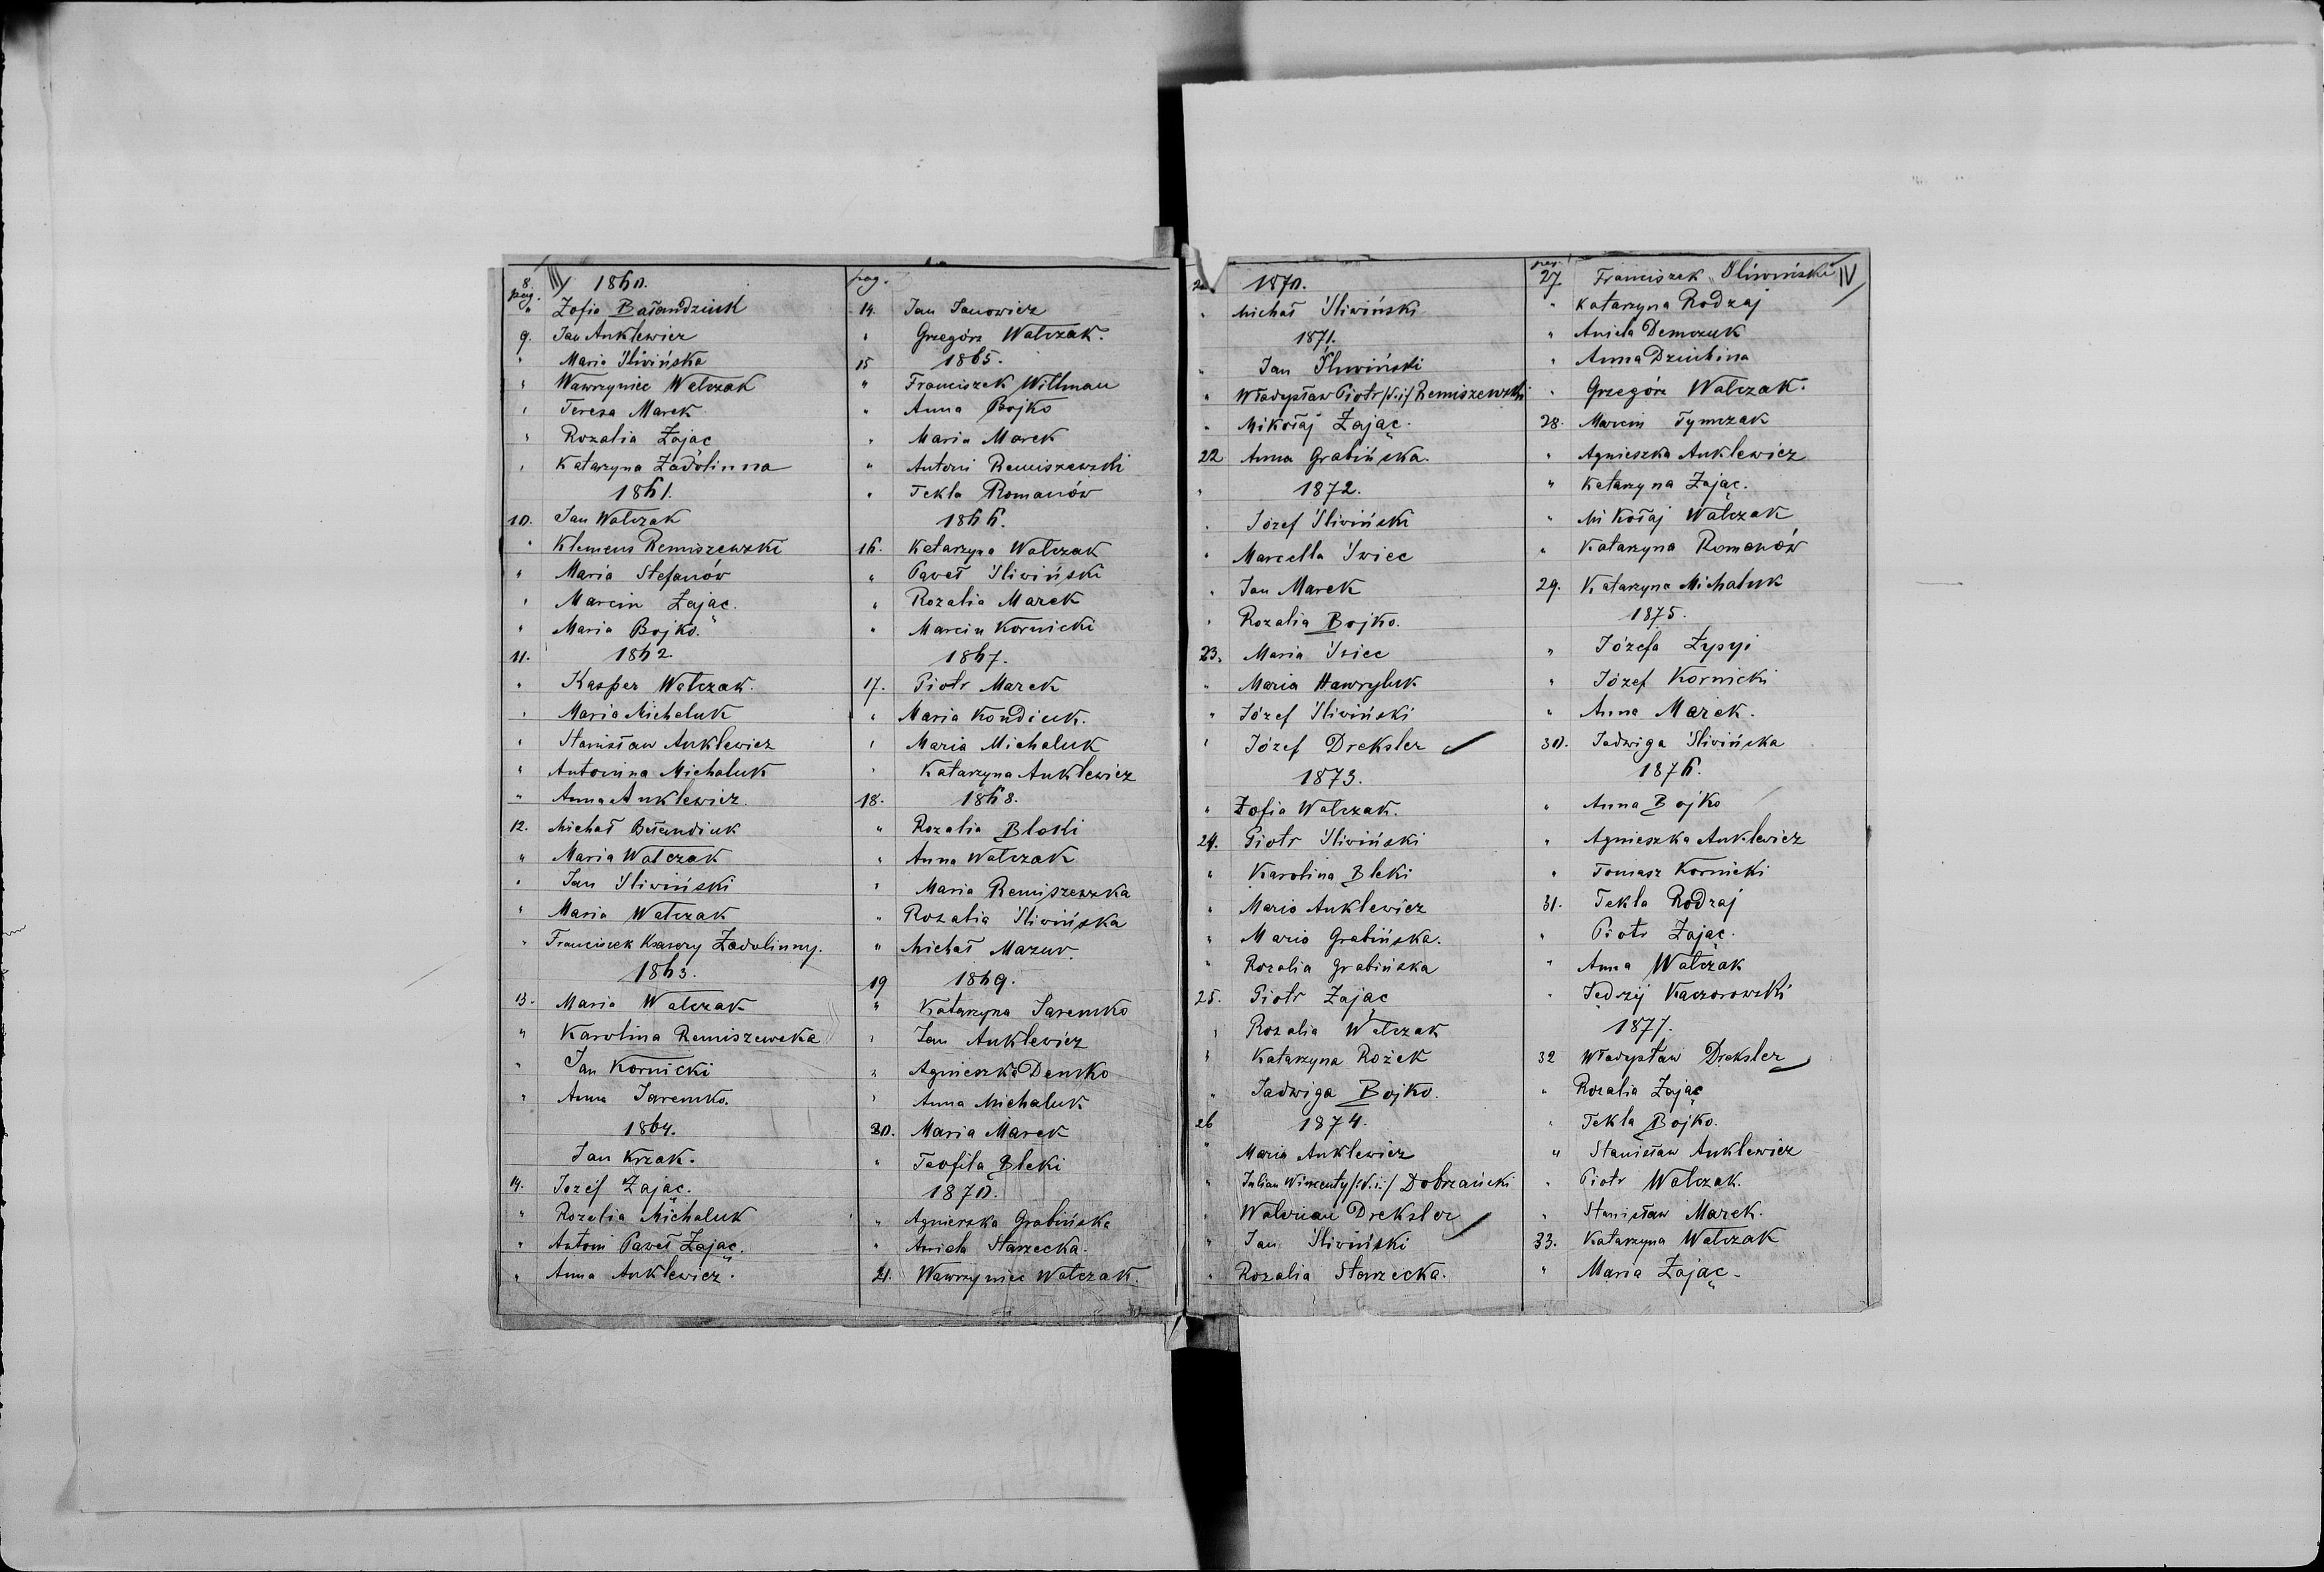 8. III/ 1860.
pag.
" Zofia Bałandziuk
9. Jan Anklewicz
" Maria Śliwińska
" Wawrzyniec Walczak
" Teresa Marek
" Rozalia Zając
" Katarzyna Zadolinna
1861.
10. Jan Walczak
" Klemens Remiszewski
" Maria Stefanów
" Marcin Zając.
" Maria Bojko.
11. 1862.
" Kasper Walczak.
" Maria Michaluk
" Stanisław Anklewicz
" Antonina Michaluk
" Anna Anklewicz.
12. Michał Bałandiuk
" Maria Walczak
" Jan Śliwiński
" Maria Walczak
" Franciszek Ksawery Zadolinny.
1863.
13. Maria Walczak
" Karolina Remiszewska
" Jan Kornicki
" Anna Jaremko.
1864.
Jan Krzak.
14. Józef Zając.
" Rozalia Michaluk
" Antoni Paweł Zając.
" Anna Anklewicz.
pag.
14. Jan Janowicz
" Grzegórz Walczak.
15 1865.
" Franciszek Willman
" Anna Bojko
" Maria Marek
" Antoni Remiszewski
" Tekla Romanów
1866.
16. Katarzyna Walczak
" Paweł Śliwiński
" Rozalia Marek
" Marcin Kornicki
1867.
17. Piotr Marek
" Maria Kondiuk.
" Maria Michaluk
" Katarzyna Anklewicz
18. 1868.
" Rozalia Bloki
" Anna Walczak
" Maria Remiszewska
" Rozalia Śliwińska
" Michał Mazur.
19 1869.
" Katarzyna Jaremko
" Jan Anklewicz
" Agnieszka Demko
" Anna Michaluk
20. Maria Marek
" Teofila Bleki
1870.
" Agnieszka Grabińska
" Aniela Starzecka.
21. Wawrzyniec Walczak.
1870.
" Michał Śliwiński
1871.
" Jan Śliwiński
" Władysław Piotr /2.i./ Remiszewski
" Mikołaj Zając.
22 Anna Grabińska.
" 1872.
" Józef Śliwiński
" Marcella Swiec
" Jan Marek
" Rozalia Bojko.
23. Maria Swiec
" Maria Hawryluk
" Józef Śliwiński
" Józef Dreksler
1873.
" Zofia Walczak.
24. Piotr Śliwiński
" Karolina Bleki
" Maria Anklewicz
" Maria Grabińska.
" Rozalia Grabińska
25. Piotr Zając
" Rozalia Walczak
" Katarzyna Rożek
" Jadwiga Bojko.
26 1874.
" Maria Anklewicz
" Julian Wincenty /2.i./ Dobrzański
" Walerian Dreksler
" Jan Śliwiński
" Rozalia Starzecka.
pag.
27. Franciszek Śliwiński IV/
" Katarzyna Rodzaj
" Aniela Demczuk
" Anna Dziuhina
" Grzegórz Walczak.
28. Marcin Tymczak
" Agnieszka Anklewicz
" Katarzyna Zając.
" Mikołaj Walczak
" Katarzyna Romanów
29. Katarzyna Michaluk
1875.
" Józefa Zypyi
" Józef Kornicki
" Anna Marek.
30. Jadwiga Śliwińska
1876.
" Anna Bojko
" Agnieszka Anklewicz
" Tomasz Kornicki
31. Tekla Rodzaj
" Piotr Zając.
" Anna Walczak
" Jędrzij Kaczorowski
1877.
32 Władysław Dreksler
" Rozalia Zając
" Tekla Bojko.
" Stanisław Anklewicz
" Piotr Walczak.
" Stanisław Marek.
33. Katarzyna Walczak
" Maria Zając.